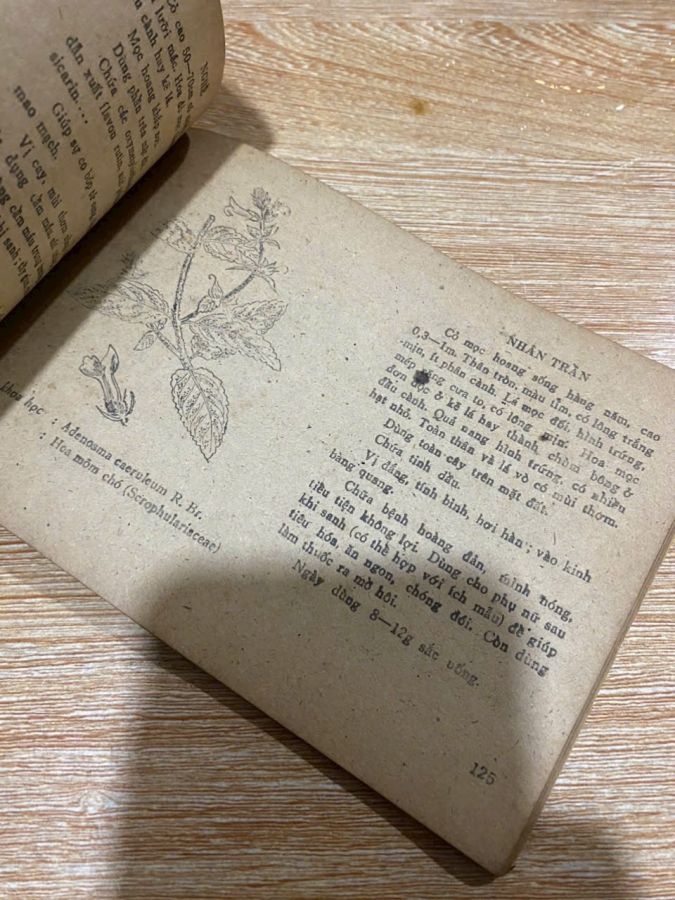 Cỏ cao 50—70cm
lưỡi mác. Hoa
cành hay kẽ lá
Mọc hoang khắp
Dùng phần trên
Chứa các
dẫn xuất flavon rutin,
sicarin...
Giúp sự co bóp
mao mạch.
Vị cay, mùi thơm
dụng cầm máu,
cầm máu trong
NHÂN TRẦN
Cỏ mọc hoang sống hàng năm, cao
0,3—1m. Thân tròn, màu tím, có lông trắng
mịn, ít phân cành. Lá mọc đối, hình trứng,
mép răng cưa to, có lông mịn. Hoa mọc
đơn độc ở kẽ lá hay thành chùm bông ở
đầu cành. Quả nang hình trứng, có nhiều
hạt nhỏ. Toàn thân và lá vò có mùi thơm.
Dùng toàn cây trên mặt đất.
Chứa tinh dầu.
Vị đắng, tính bình, hơi hàn; vào kinh
bàng quang.
Chữa bệnh hoàng đản, mình nóng,
tiểu tiện không lợi. Dùng cho phụ nữ sau
khi sanh (có thể hợp với ích mẫu) để giúp
tiêu hóa, ăn ngon, chóng đói. Còn dùng
làm thuốc ra mồ hôi.
Ngày dùng 8—12g sắc uống.
khoa học : Adenosma caeruleum R. Br.
: Hoa mõm chó (Scrophulariaceae)
125